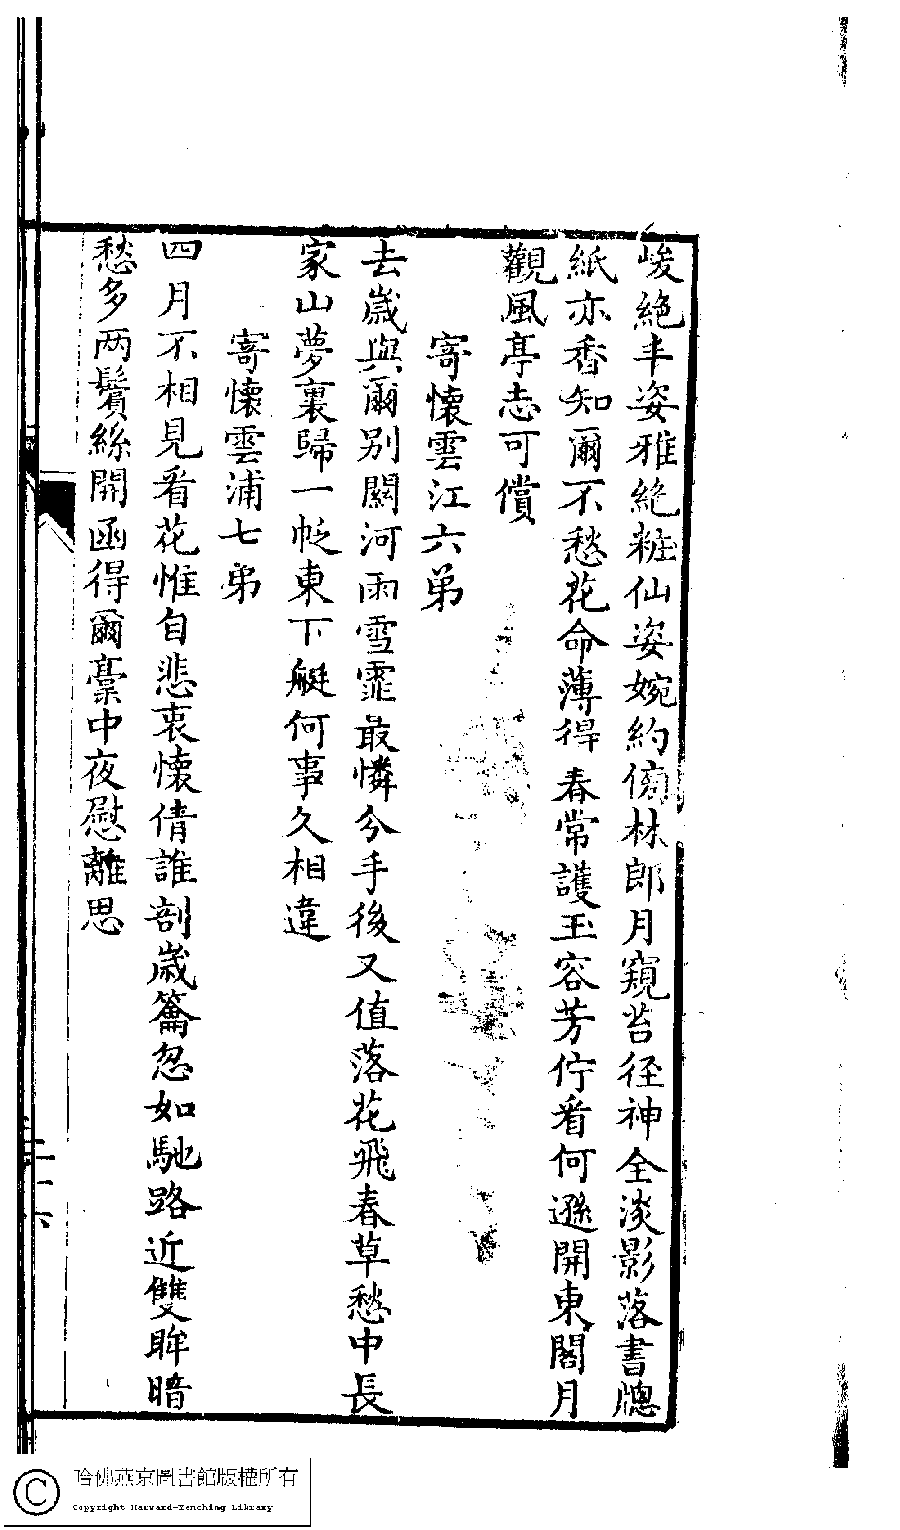 峻絶丰姿雅絶粧仙姿婉約傍林郎月窺苔徑神全淡影落書牕
紙亦香知爾不愁花命薄得春常護玉容芳佇看何遜開東閣月
觀風亭志可償
寄懷雲江六弟
去歲與爾别關河雨雪霏最憐分手後又值落花飛春草愁中長
家山夢裏歸一帆東下艇何事久相違
寄懷雲浦七弟
四月不相見看花惟自悲衷懷倩誰剖歲籥忽如馳路近雙眸暗
愁多两鬢絲開函得爾稾中夜慰離思
二十六
哈佛燕京圖書館版權所有
Copyright Harvard-Yenching Library